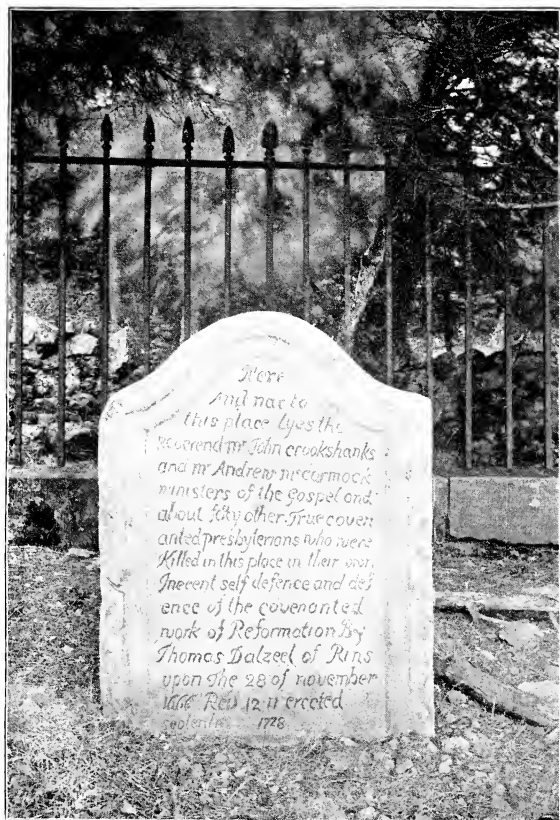 Here
And near to
this place lyes the
Reverend mr John crookshanks
and mr Andrew mccormock
ministers of the Gospel and
about fifty other True coven
anted presbyterians who were
Killed in this place in their own
Inocent self defence and def
ence of the covenanted
work of Reformation By
Thomas Dalzeel of Bins
upon The 28 of november
1666 Rev 12 11 erected
september 1728